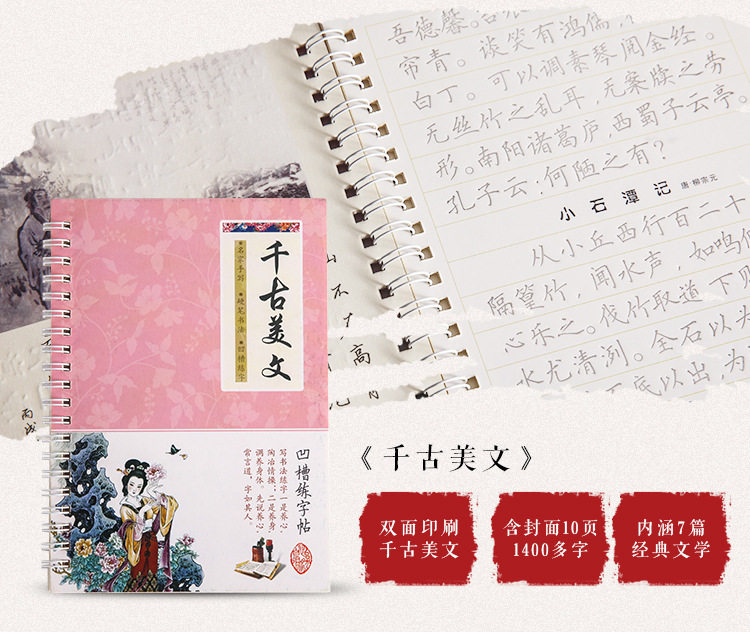 吾德馨。
帘青。谈笑有鸿儒，
白丁。可以调素琴阅金经。
无丝竹之乱耳，无案牍之劳
形。南阳诸葛庐，西蜀子云亭。
孔子云：何陋之有？
小石潭记 唐·柳宗元
从小丘西行百二十
隔篁竹，闻水声，如鸣佩
心乐之。伐竹取道，下见
水尤清冽。全石以为
底以出，为
千古美文
●名家手写 ●硬笔书法 ●凹槽练字
凹槽练字帖
写书法练字一是养心，
陶冶情操；二是养身，
调养身体。先说养心，
常言道，字如其人。
《千古美文》
双面印刷
千古美文
含封面10页
1400多字
内涵7篇
经典文学